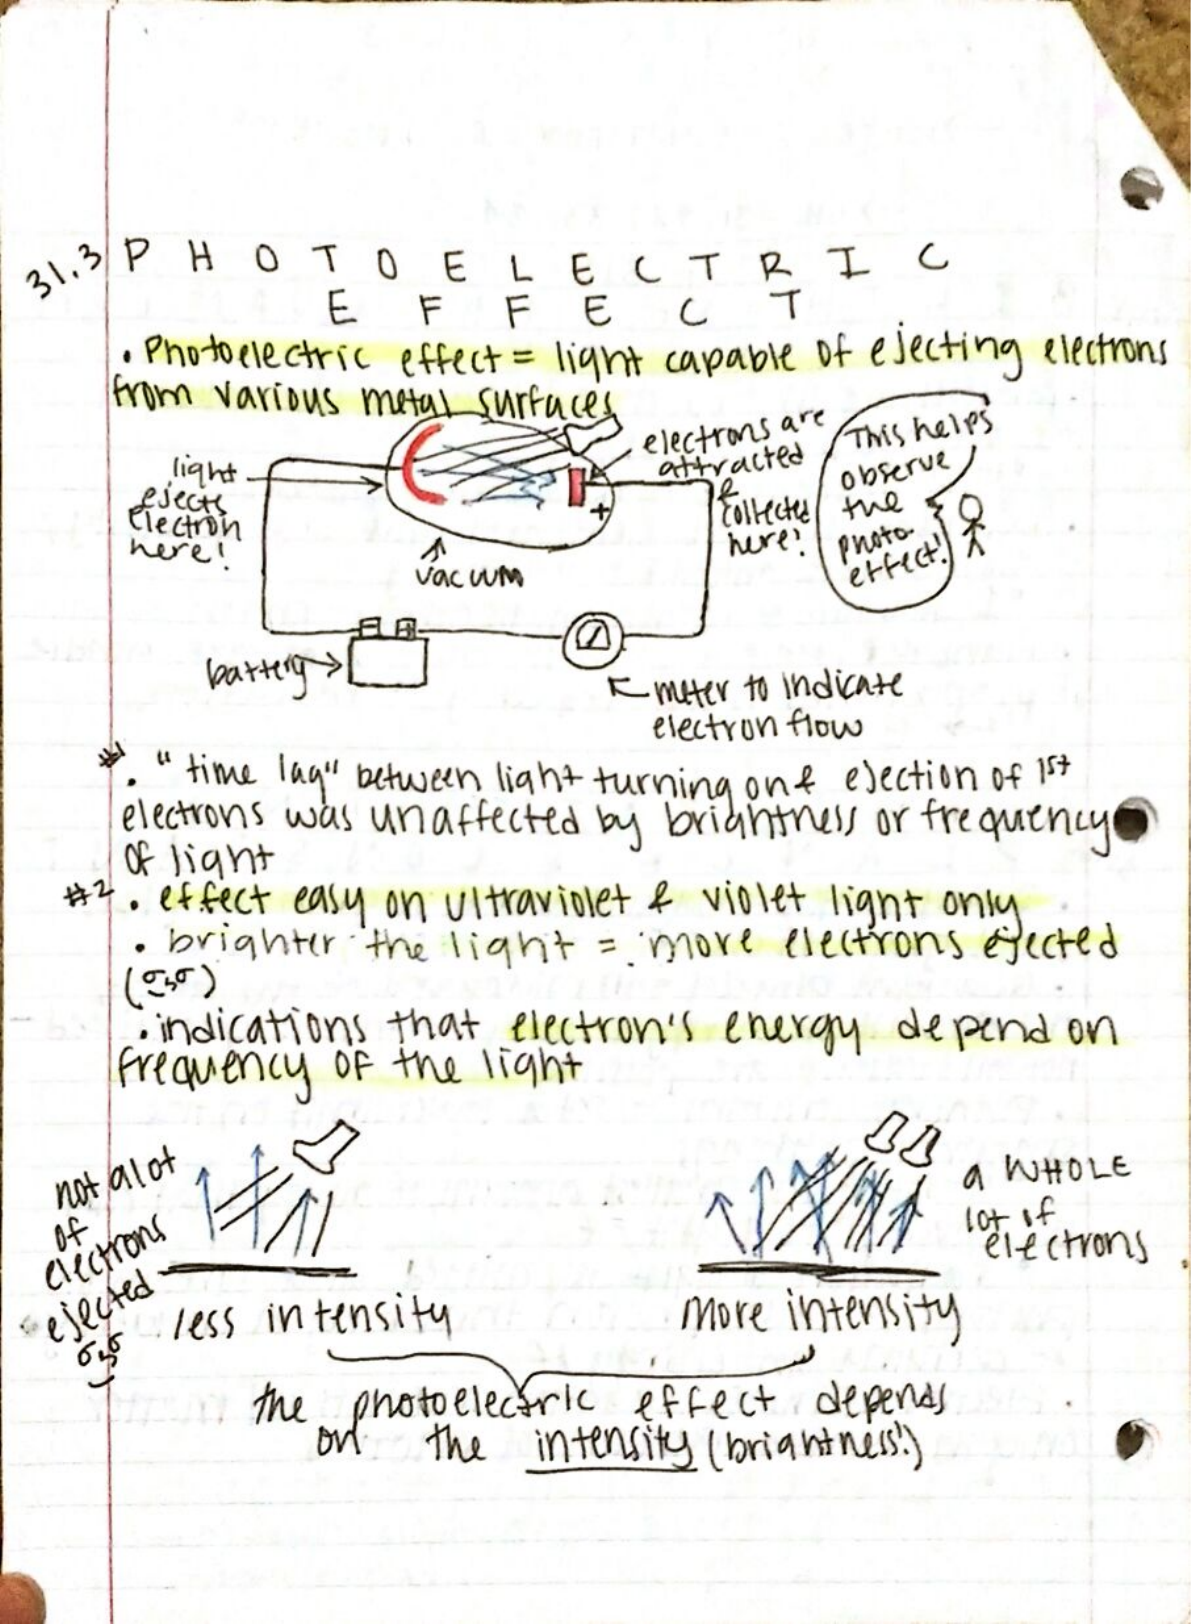 31.3 PHOTOELECTRIC
EFFECT
• Photoelectric effect = light capable of ejecting electrons
from various metal surfaces
light
ejects
electron
here!
electrons are
attracted
&
collected
here!
This helps
observe
the
photo-
effect!
+
vacuum
battery
meter to indicate
electron flow
#1 • "time lag" between light turning on & ejection of 1st
electrons was unaffected by brightness or frequency
of light
#2 • effect easy on ultraviolet & violet light only
• brighter the light = more electrons ejected
• indications that electron's energy depend on
frequency of the light
not alot
of
electrons
ejected
less intensity
a WHOLE
lot of
electrons
more intensity
the photoelectric effect depends
on the intensity (brightness!)